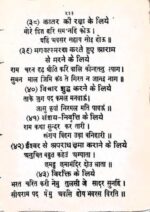 २१३
(३८) कातर की रक्षा के लिये
मोरें हित हरि सम नहिं कोऊ ।
एहि अवसर सहाय सोइ होऊ ॥
(३९) भगवत्स्मरण करते हुए आराम
से मरने के लिये
राम चरन दृढ़ प्रीति करि बालि कीन्ह तनु त्याग ।
सुमन माल जिमि कंठ ते गिरत न जानइ नाग ॥
(४०) विचार शुद्ध करने के लिये
ताके जुग पद कमल मनावउँ ।
जासु कृपाँ निरमल मति पावउँ ॥
(४१) संशय-निवृत्ति के लिये
राम कथा सुंदर कर तारी ।
संसय बिहग उड़ावनिहारी ॥
(४२) ईश्वर से अपराध क्षमा कराने के लिये
अनुचित बहुत कहेउँ अग्याता ।
छमहु छमामंदिर दोउ भ्राता ॥
(४३) विरक्ति के लिये
भरत चरित करि नेमु तुलसी जे सादर सुनहिं ।
सीय राम पद प्रेमु अवसि होइ भव रस बिरति ॥